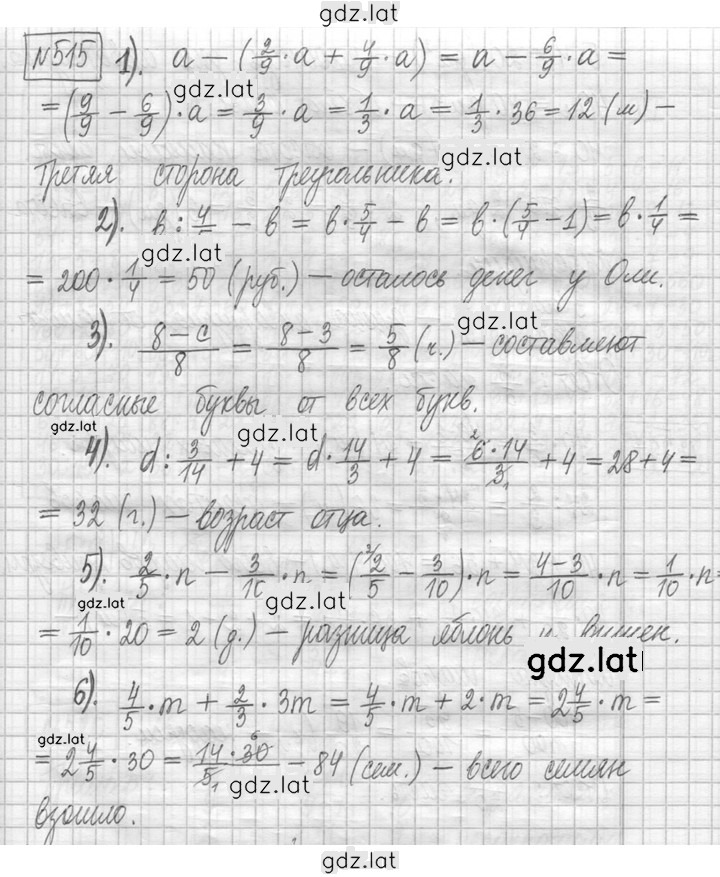 gdz.lat
№515 1). a − (2/9 · a + 4/9 · a) = a − 6/9 · a =
gdz.lat
= (9/9 − 6/9) · a = 3/9 · a = 1/3 · a = 1/3 · 36 = 12 (м) −
gdz.lat
третяя сторона треугольника.
2). в : 4/ − в = в · 5/4 − в = в · (5/4 − 1) = в · 1/4 =
gdz.lat
= 200 · 1/4 = 50 (руб.) − осталось денег у Оли.
gdz.lat
3). (8−c)/8 = (8−3)/8 = 5/8 (ч.) − составляют
согласные буквы от всех букв.
gdz.lat
gdz.lat
4). d : 3/14 + 4 = d · 14/3 + 4 = (6·14)/3 + 4 = 28 + 4 =
= 32 (г.) − возраст отца.
gdz.lat
5). 2/5 · n − 3/10 · n = (2/5 − 3/10) · n = (4−3)/10 · n = 1/10 · n =
gdz.lat
gdz.lat
= 1/10 · 20 = 2 (д.) − разница яблонь и вишен.
gdz.lat
6). 4/5 · m + 2/3 · 3m = 4/5 · m + 2 · m = 2 4/5 · m =
gdz.lat
= 2 4/5 · 30 = (14·30)/5 − 84 (сем.) − всего семян
gdz.lat
взошло.
gdz.lat